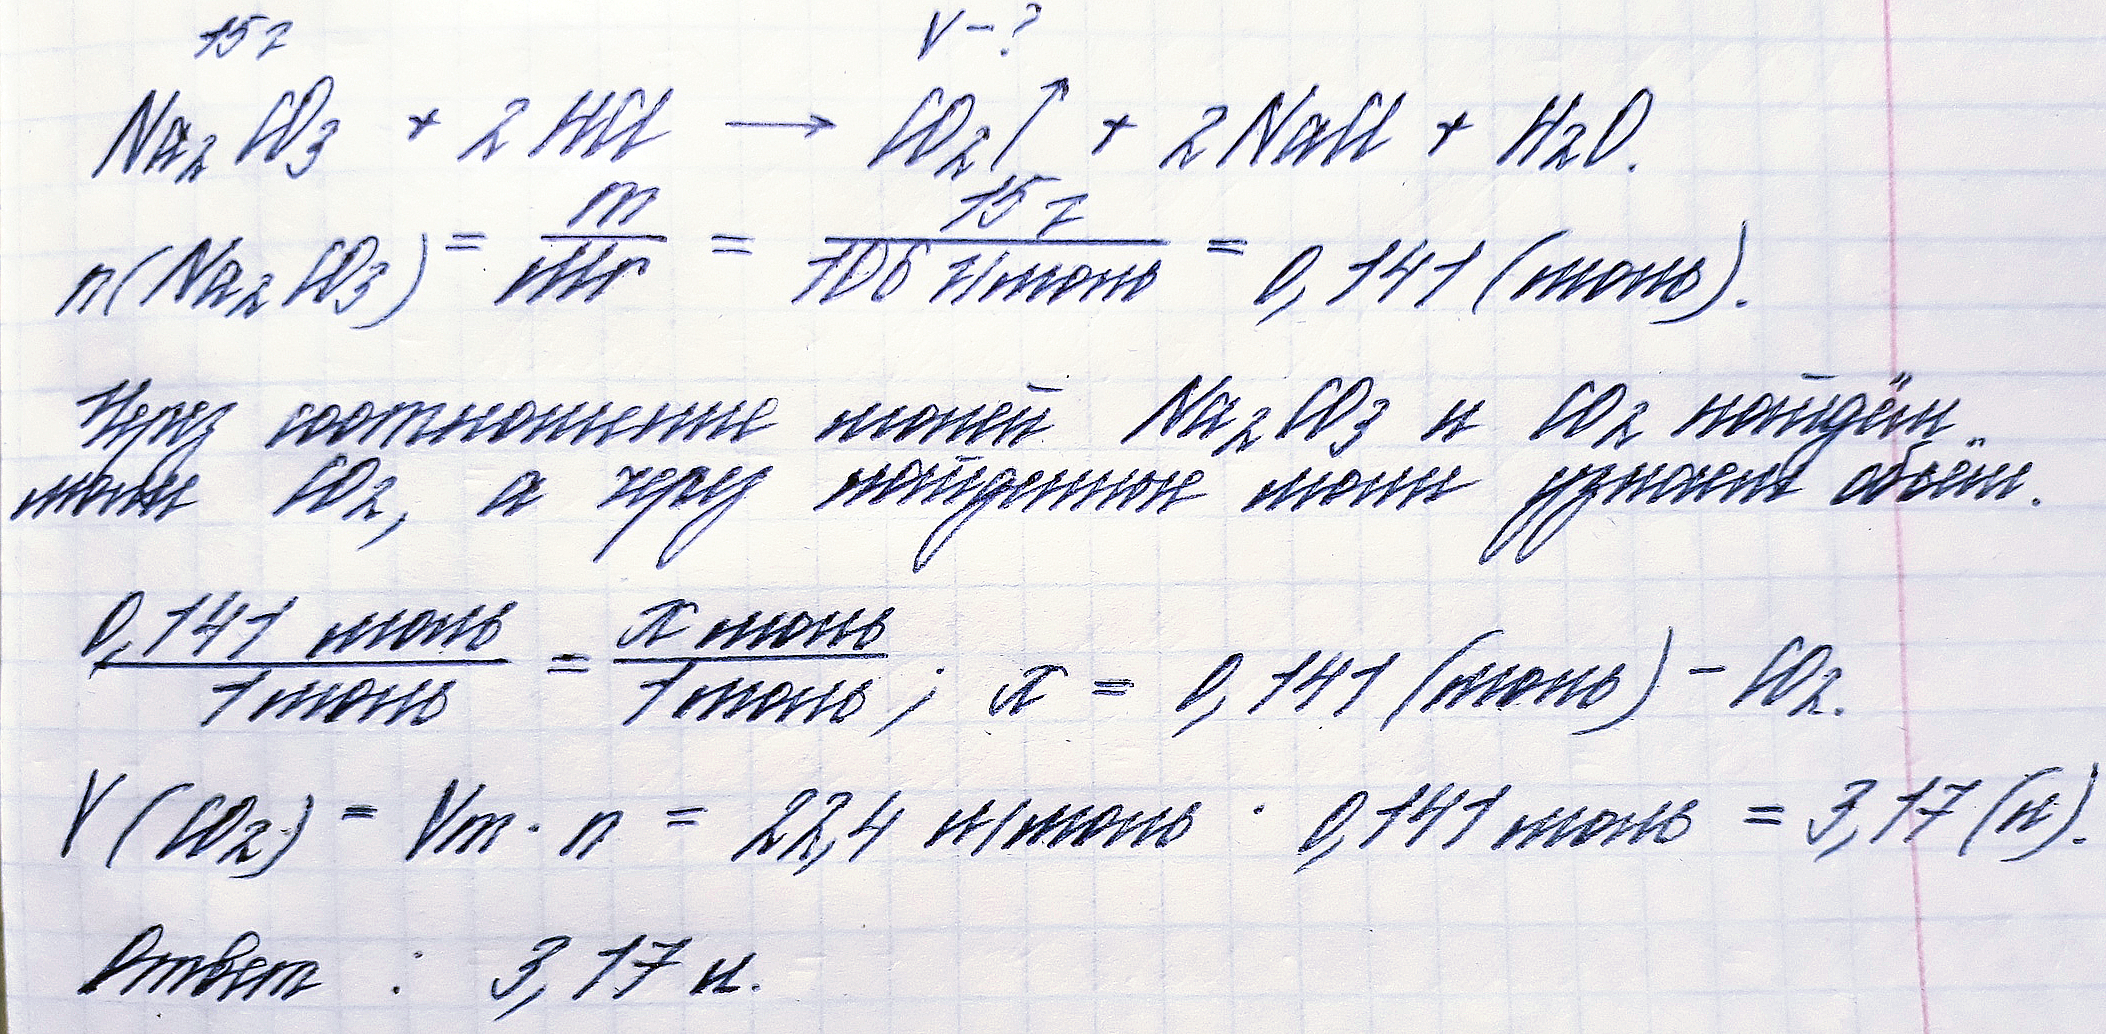 15 г V - ?
Na₂CO₃ + 2HCl → CO₂↑ + 2NaCl + H₂O.
n(Na₂CO₃) = m/Mr = 15 г/106 г/моль = 0,141 (моль).
Через соотношение молей Na₂CO₃ и CO₂ найдём
моли CO₂, а через найденные моли узнаем объём.
0,141 моль/1 моль = x моль/1 моль; x = 0,141 (моль) - CO₂.
V(CO₂) = Vm · n = 22,4 л/моль · 0,141 моль = 3,17 (л).
Ответ: 3,17 л.